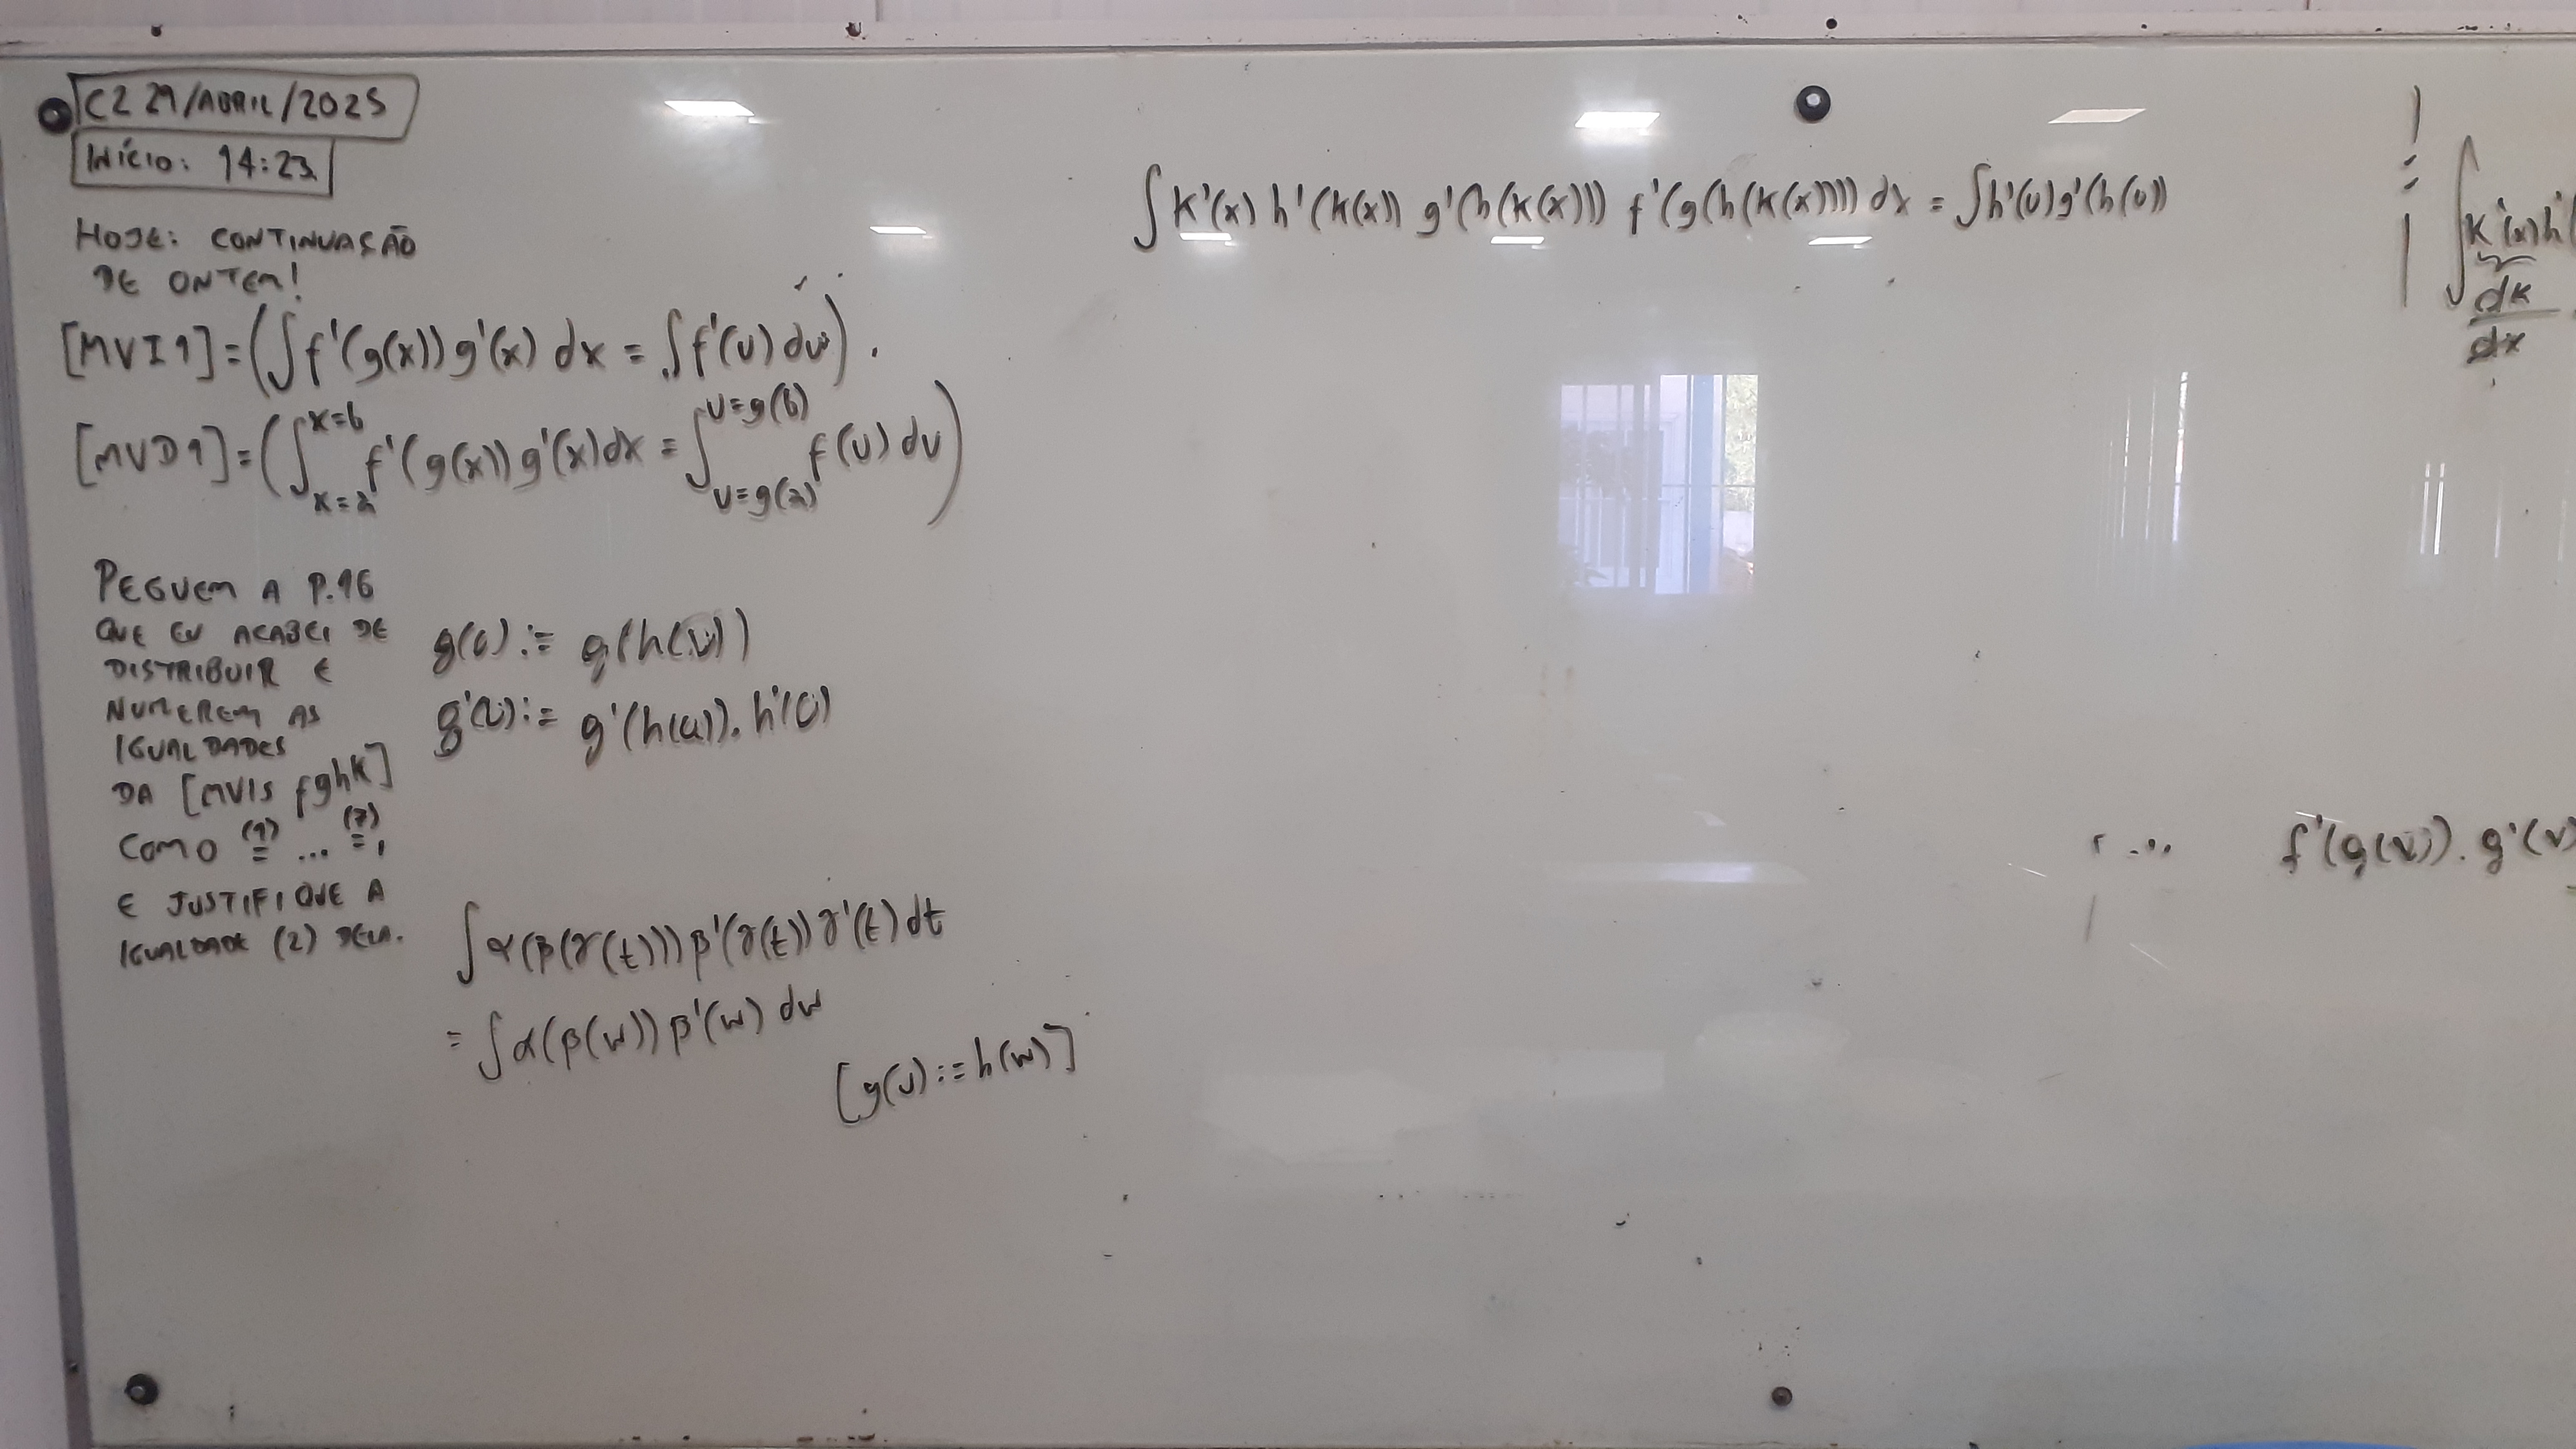 C2 29/ABRIL/2025
INÍCIO: 14:23
HOJE: CONTINUAÇÃO
DE ONTEM!
[MVI1] = (∫f'(g(x))g'(x) dx = ∫f'(u) du).
[MVD1] = (∫_{x=a}^{x=b} f'(g(x))g'(x)dx = ∫_{u=g(a)}^{u=g(b)} f(u) du)
PEGUEM A P.16
QUE EU ACABEI DE
DISTRIBUIR E
NUMEREM AS
IGUALDADES
DA [MVIS fghk]
COMO (1)= ... (7)=,
E JUSTIFIQUE A
IGUALDADE (2) DELA.
g(u) := g(h(u))
g'(u) := g'(h(u)).h'(u)
∫α(β(γ(t)))β'(γ(t))γ'(t)dt
= ∫α(β(w))β'(w) dw
[g(u) := h(w)]
∫k'(x) h'(k(x)) g'(h(k(x))) f'(g(h(k(x)))) dx = ∫h'(u)g'(h(u))
∫k'(x)h'(
dk
dx
f'(g(v)).g'(v)